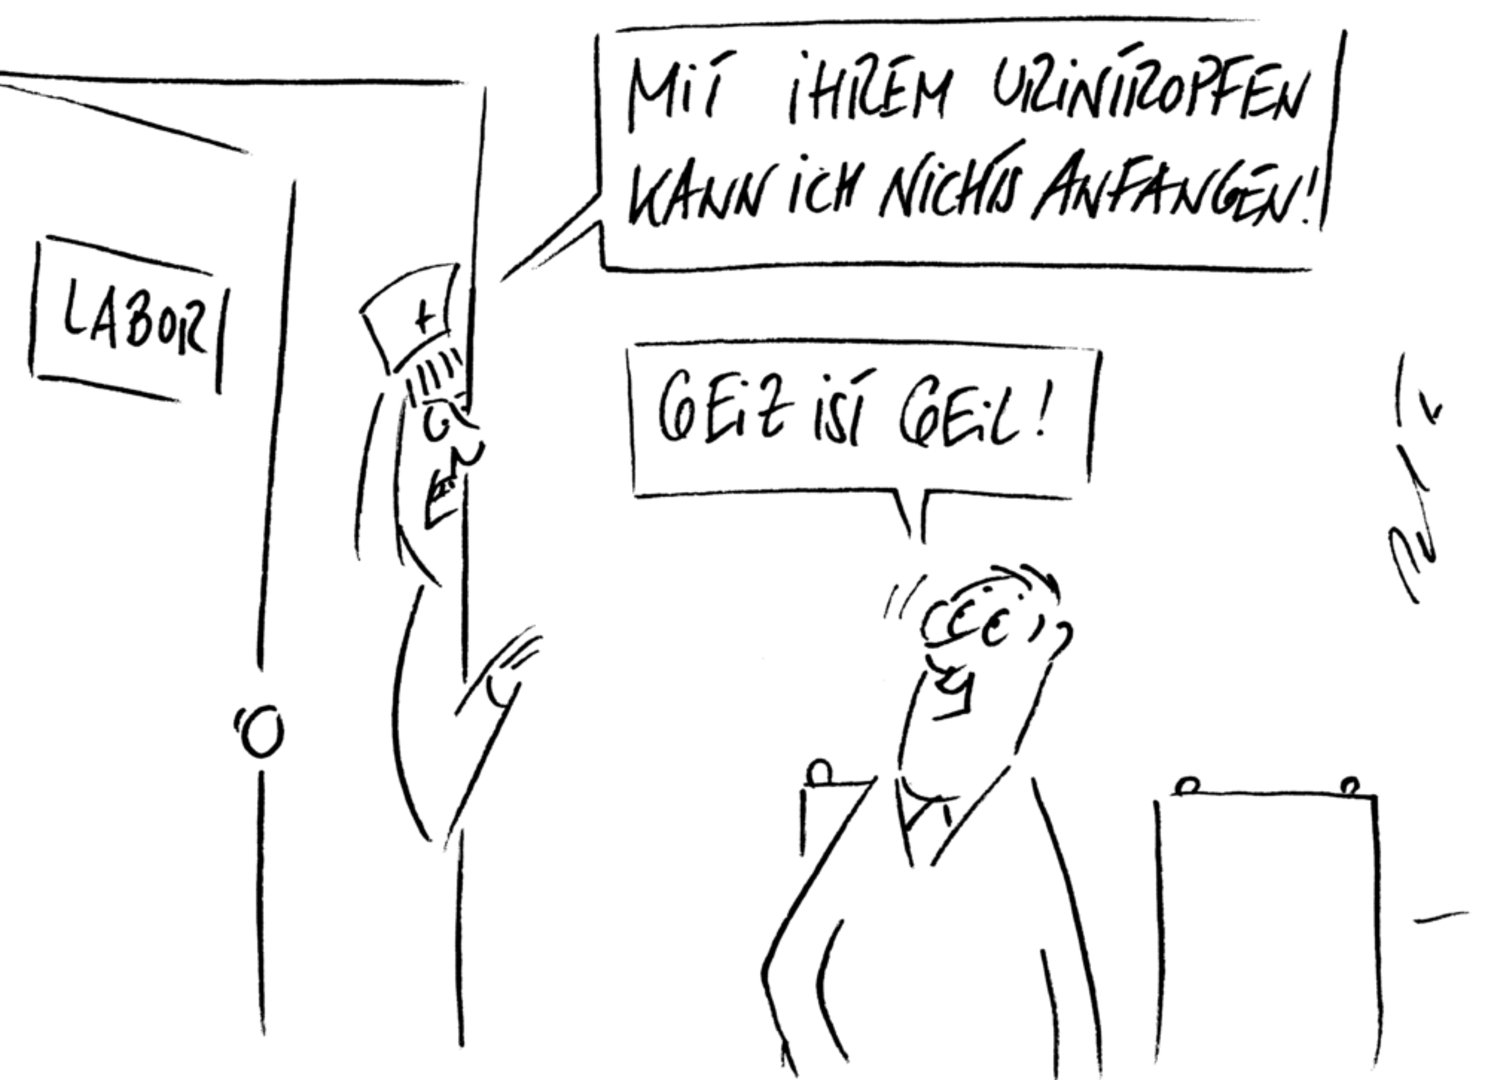 MIT IHREM URINTROPFEN
KANN ICH NICHTS ANFANGEN!
LABOR
GEIZ IST GEIL!